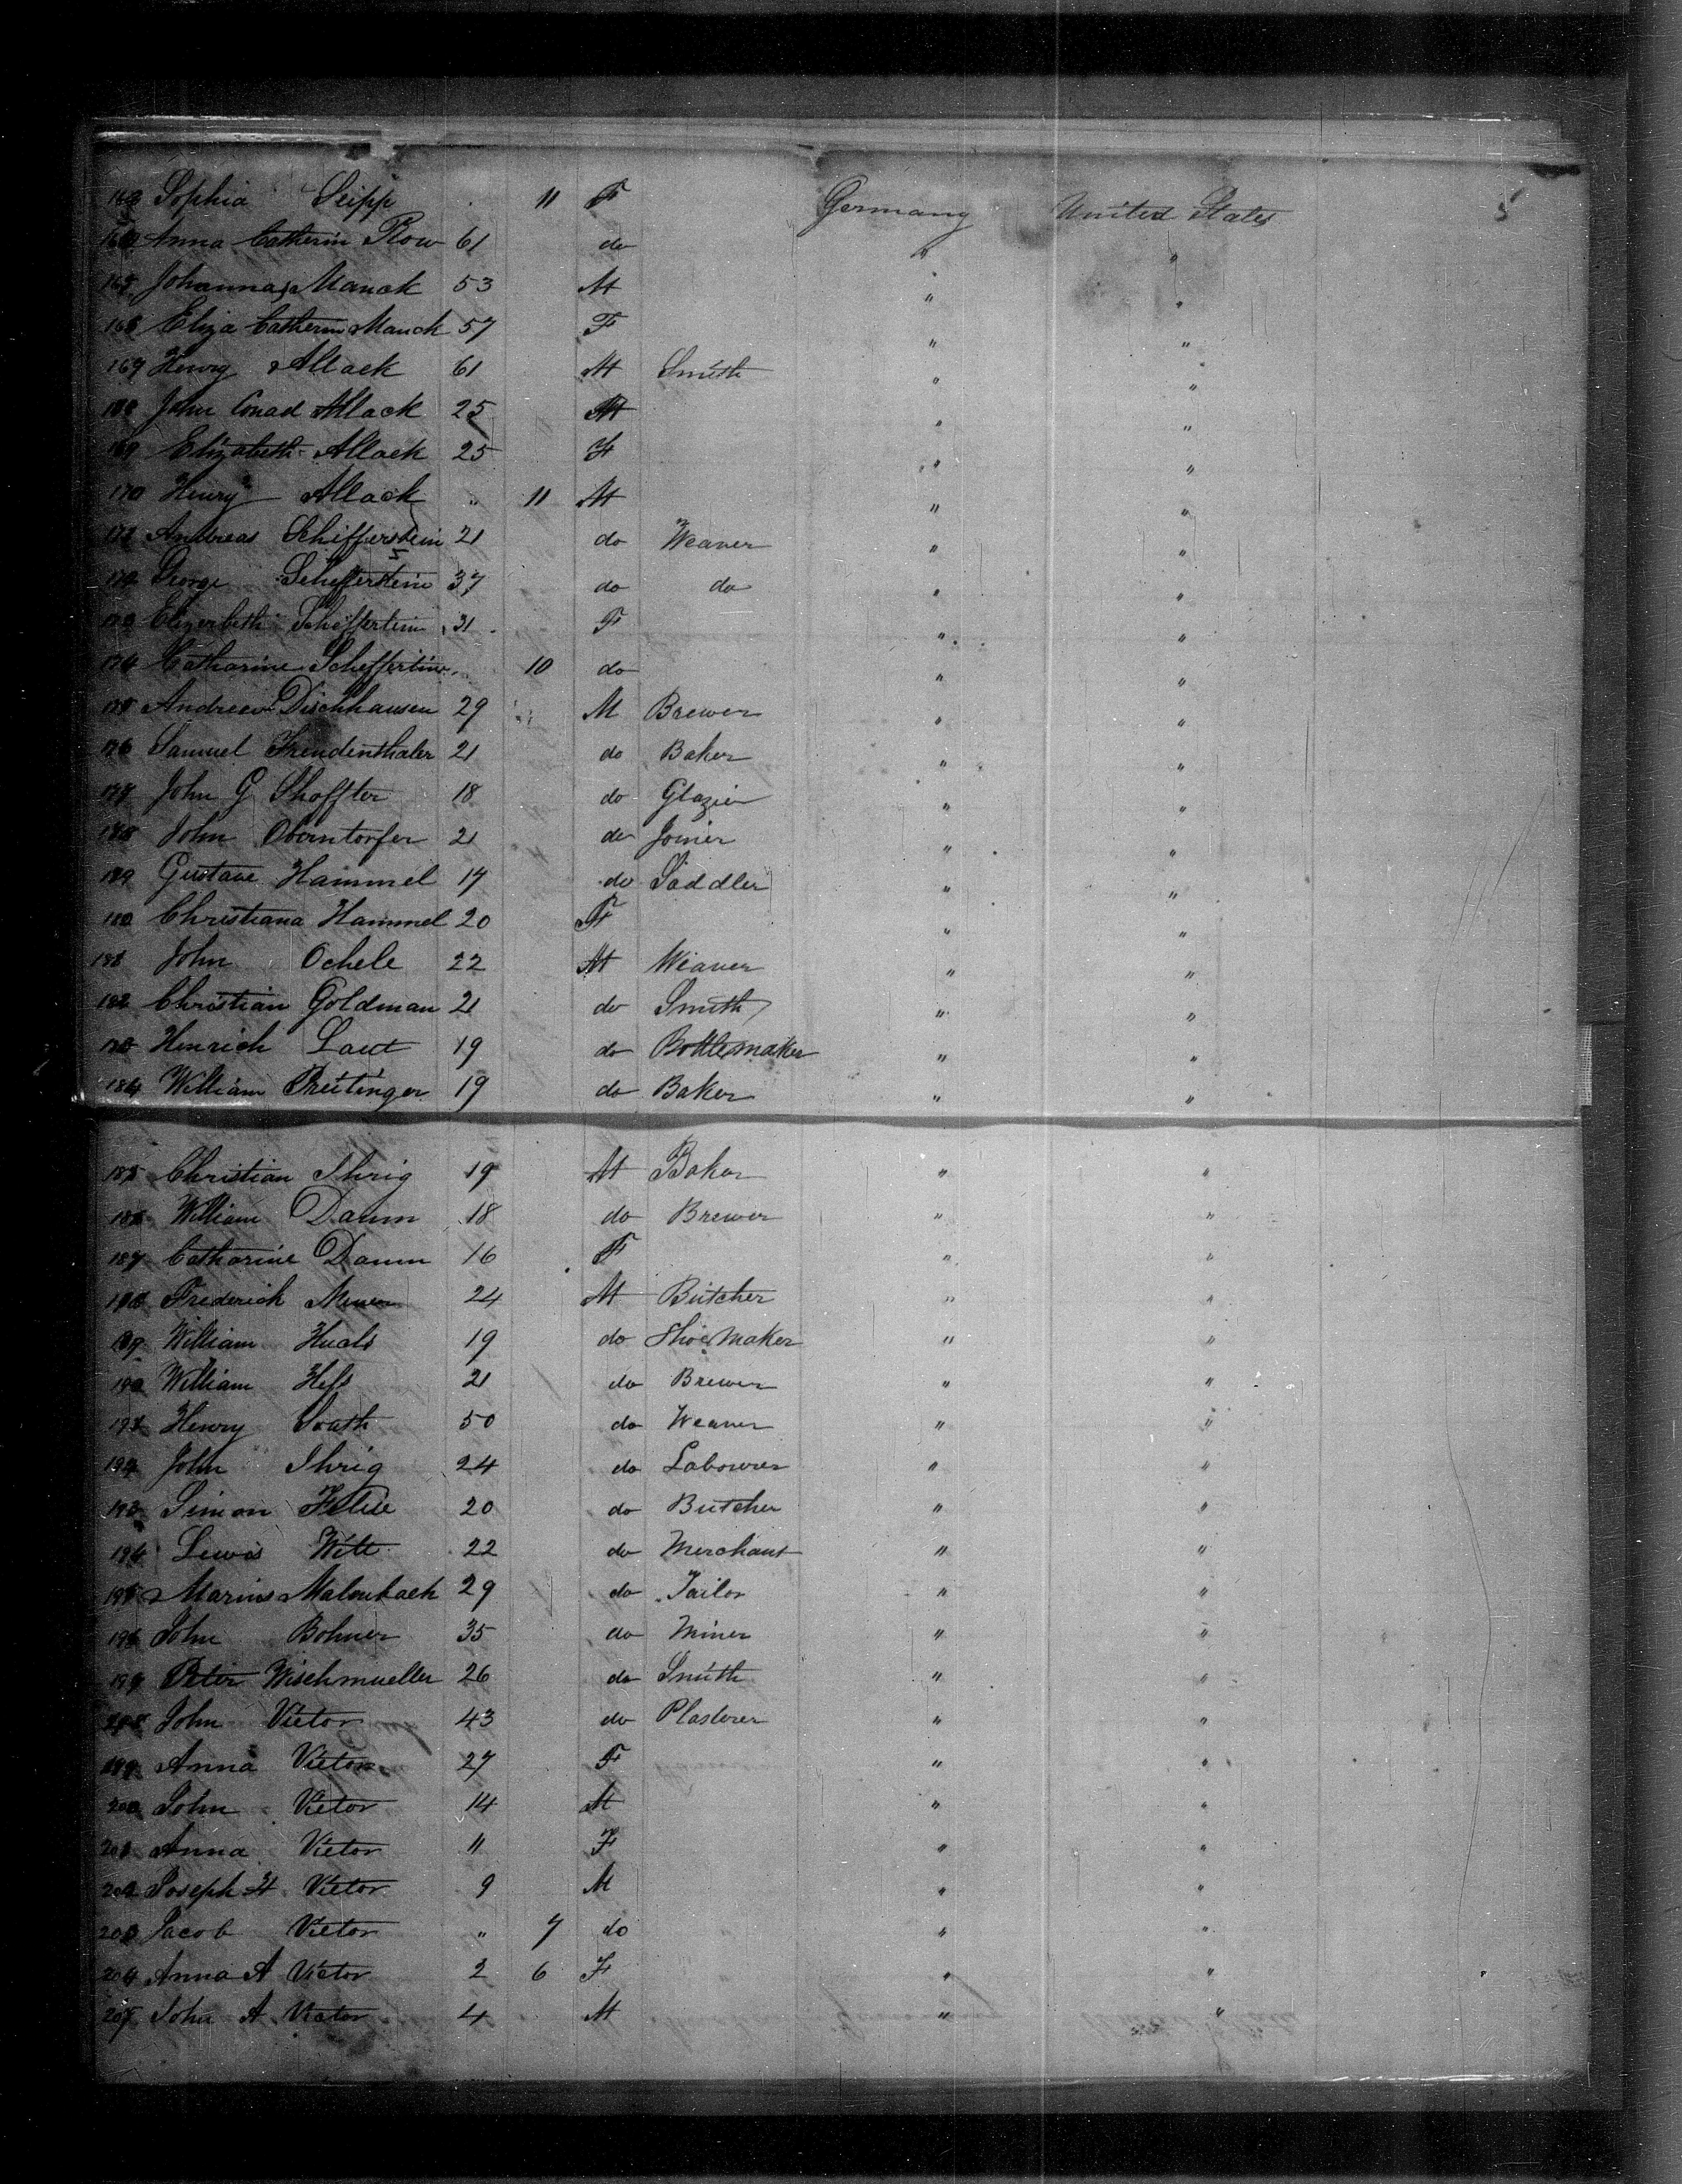 163 Sophia Seipp 11 F Germany United States 5
164 Anna Catherin Row 61 do " "
165 Johannas Manck 53 M " "
166 Eliza Catherin Manck 57 F " "
167 Henry Mack 61 M Smith " "
168 John Conad Mack 25 M " "
169 Elizabeth Mack 25 F " "
170 Henry Mack " 11 M " "
171 Andreas Schifferstein 21 do Weaver " "
172 George Schefferstein 37 do do " "
173 Elizerbeth Scheffertein 31 F " "
174 Catharine Scheffertine 10 do " "
175 Andreew Dischhausen 29 M Brewer " "
176 Samuel Freudenthaler 21 do Baker " "
177 John G Shoffter 18 do Glazier " "
178 John Oberntorfer 21 do Joiner " "
179 Gustave Hammel 17 do Saddler " "
180 Christiana Hammel 20 F " "
181 John Ochele 22 M Weaver " "
182 Christian Goldman 21 do Smith " "
183 Henrich Laut 19 do Bottlemaker " "
184 William Preitinger 19 do Baker " "
185 Christian Ihrig 19 M Baker " "
186 William Damm 18 do Brewer " "
187 Catharine Damm 16 F " "
188 Frederick 24 M Butcher " "
189 William 19 do Shoemaker " "
190 William Hess 21 do Brewer " "
191 Henry 50 do Weaver " "
192 John Ihrig 24 do Labourer " "
193 Simon 20 do Butcher " "
194 Lewis Witt 22 do Merchant " "
195 Marins 29 do Tailor " "
196 John Bohner 35 do Miner " "
197 Peter Wischmueller 26 do Smith " "
198 John Vietor 43 do Plasterer " "
199 Anna Vietor 27 F " "
200 John Vietor 14 M " "
201 Anna Vietor 11 F " "
202 Joseph H Vietor 9 M " "
203 Jacob Vietor " 7 do " "
204 Anna A Vietor 2 6 F " "
205 John A Vietor 4 M " "